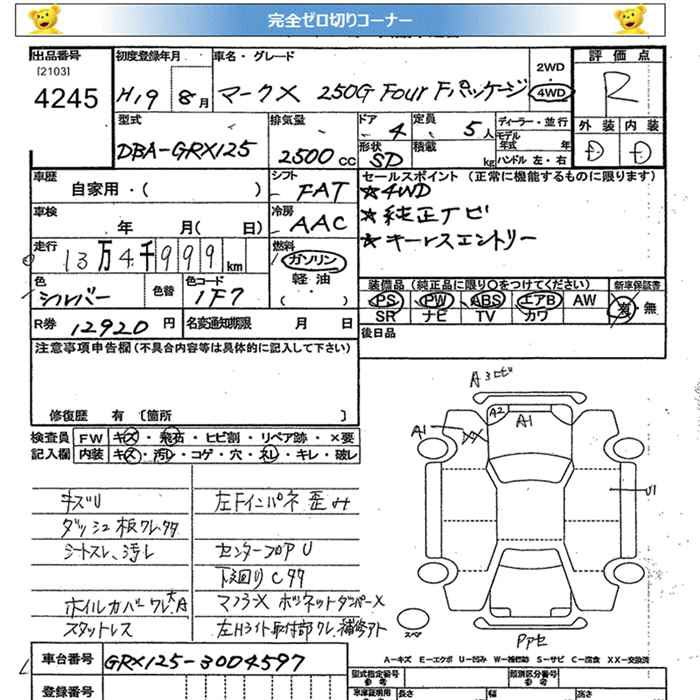 完全ゼロ切りコーナー
出品番号 初度登録年月 車名・グレード 2WD 評価点
[2103]
4245 H19 8月 マークX 250G Four Fパッケージ 4WD R
型式 排気量 ドア 定員 ディーラー・並行 外装 内装
DBA-GRX125 2500cc 4 5人 モデル年式 年 D D
形状 SD 積載 kg ハンドル 左・右
車歴 自家用・( ) シフト FAT セールスポイント (正常に機能するものに限ります)
★4WD
車検 年 月( 日) 冷房 AAC ★純正ナビ
★キーレスエントリー
走行 13万4千999km 燃料 ガソリン 軽油 ( )
色 シルバー 色替 色コード 1F7
装備品 (純正品に限り○をつけてください) 新車保証書
PS PW ABS エアB AW 有・無
SR ナビ TV カワ
R券 12920円 名変通知期限 月 日 後日品
注意事項申告欄 (不具合内容等は具体的に記入して下さい)
修復歴 有 [箇所 ]
検査員 FW キズ・飛石・ヒビ割・リペア跡・×要
記入欄 内装 キズ・汚レ・コゲ・穴・スレ・キレ・破レ
Aコビ
A2 A1
A1 XX
U1
キズU 左Fインパネ 歪み
ダッシュ板ワレ
シートスレ、汚レ センターフロアU
下廻りC
ホイルカバーワレ大A マフラーX ボンネットダンパーX
スタットレス 左Hライト取付部ワレ、補修アト
スペア
PPセ
車台番号 GRX125-3004597
A-キズ E-エクボ U-凹み W-補修跡 S-サビ C-腐食 XX-交換済
登録番号
型式指定番号 参考 類別区分番号 参考
車庫証明用 長さ 幅 高さ